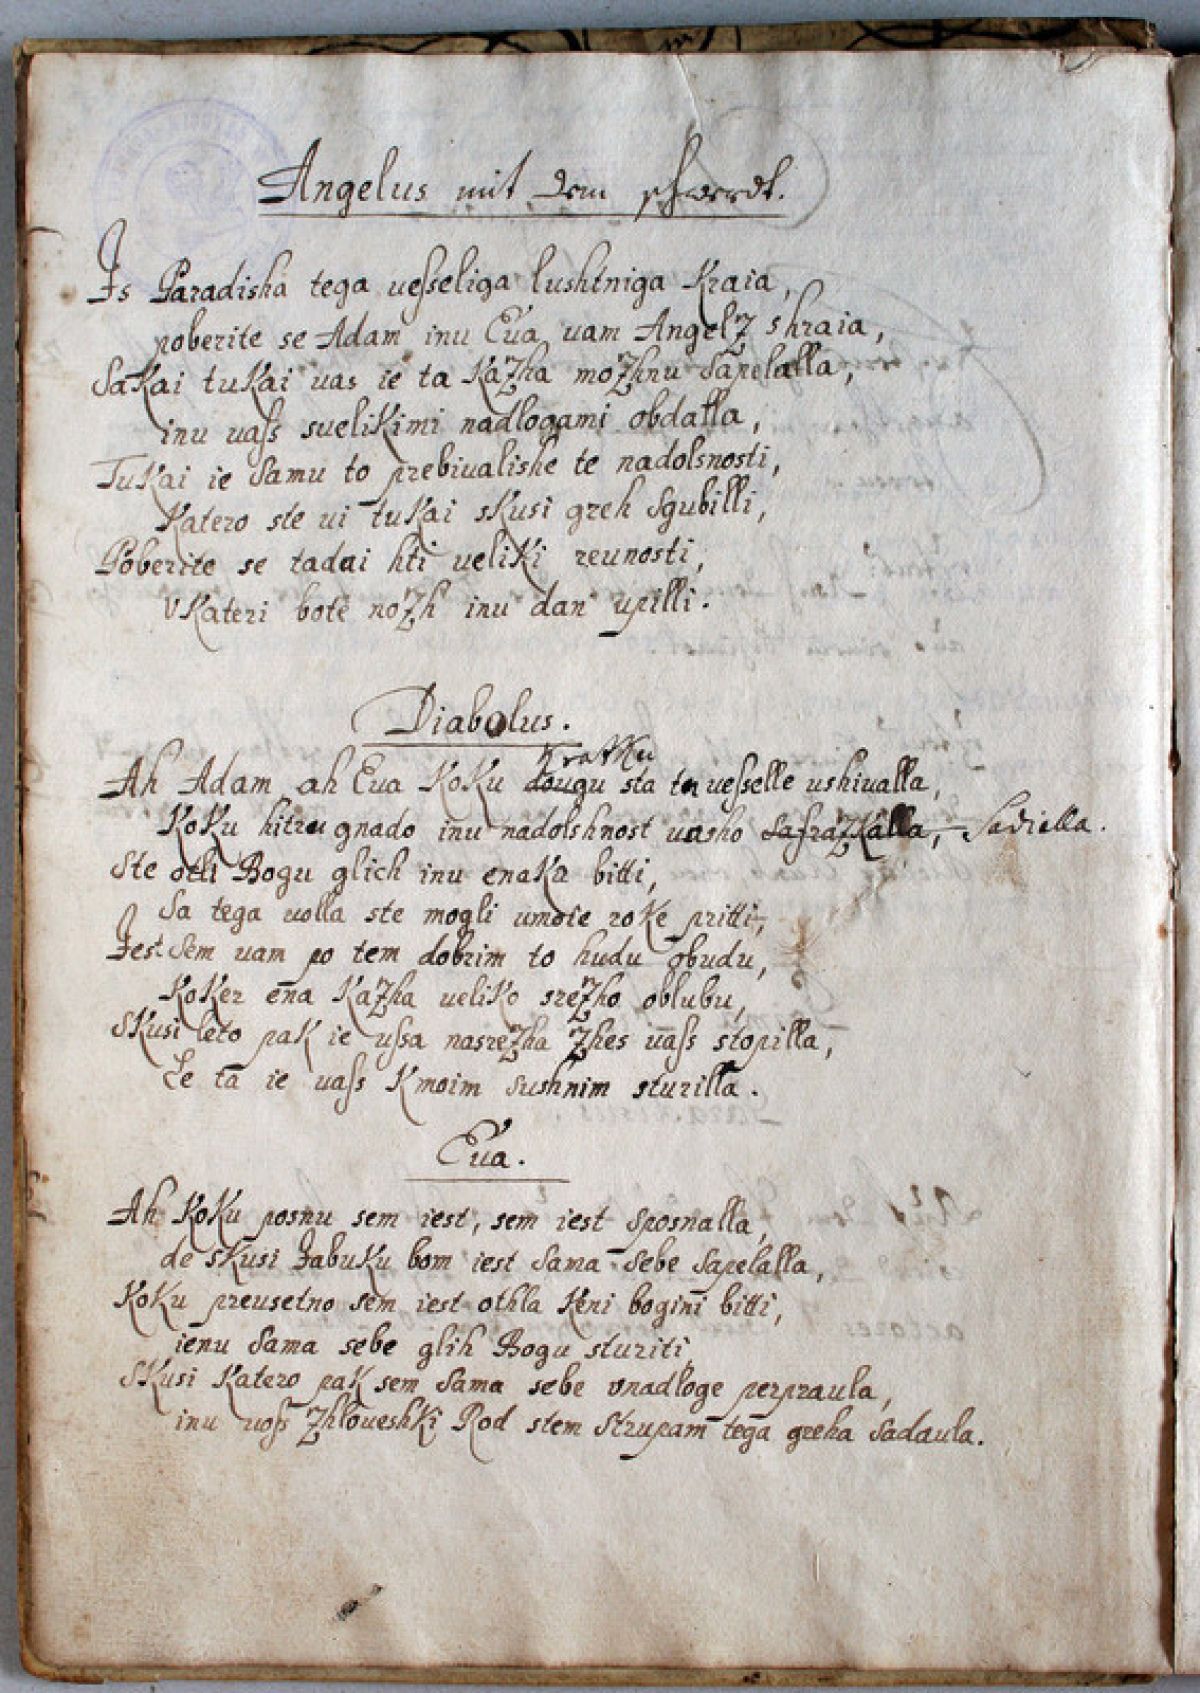 Angelus mit dem schwerdt.
Is Paradisha tega vesseliga lushtniga Kraia,
poberite se Adam inu Eua, uam Angelz shraia,
Sakai tukai uas ie ta Kazha mozhnu Sapelalla,
inu uass suelikimi nadlogami obdalla,
Tukai ie Samu to prebiualishe te nadolsnosti,
Katero ste ui tukai skusi greh Sgubilli,
Poberite se tadai hti ueliki reunosti,
vKateri bote nozh inu dan upilli.
Diabolus.
Kratku
Ah Adam ah Eua Koku dougu sta to uesselle ushiualla,
Koku hitru gnado inu nadolshnost uasho Safrazkalla, Sadiella.
Ste otli Bogu glich inu enaka bitti,
Sa tega uolla ste mogli umoie roke pritti,
Jest Sem uam po tem dobrim to hudu obudu,
Koker ena Kazha ueliko srezho oblubu,
Skusi leto pak ie ussa nasrezha zhes uass stopilla,
Le ta ie uass Kmoim sushnim sturilla.
Eua.
Ah Koku posnu sem iest, sem iest sposnalla,
de skusi Jabuku bom iest Sama Sebe Sapelalla,
Koku preusetno sem iest othla Keni bogini bitti,
ienu Sama sebe glih Bogu sturiti,
Skusi Katero pak sem Sama sebe vnadloge perpraula,
inu uoss Zhloueshki Rod stem Strupam tega greha Sadaula.